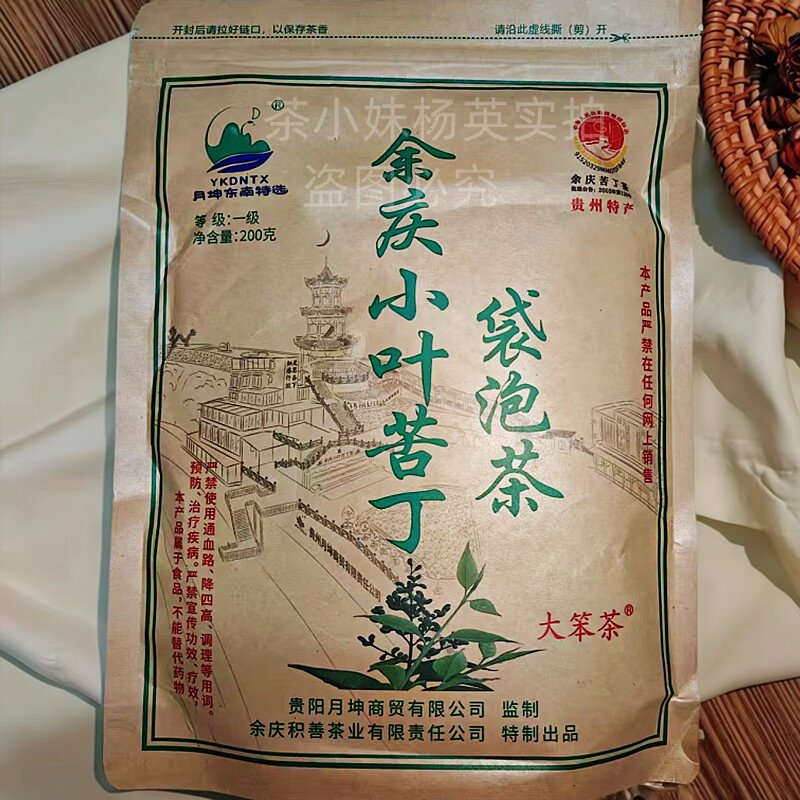 开封后请拉好链口，以保存茶香
请沿此虚线撕（剪）开
茶小妹杨英实拍
盗图必究
YKDNTX
月坤东南特选
等 级:一级
净含量:200克
余庆苦丁茶
贵州特产
余庆小叶苦丁
袋泡茶
本产品严禁在任何网上销售
严禁使用通血路、降四高、调理等用词。
预防、治疗疾病。严禁宣传功效、疗效，
本产品属于食品，不能替代药物
贵州月坤商贸有限责任公司
大笨茶®
贵阳月坤商贸有限公司 监制
余庆积善茶业有限责任公司 特制出品